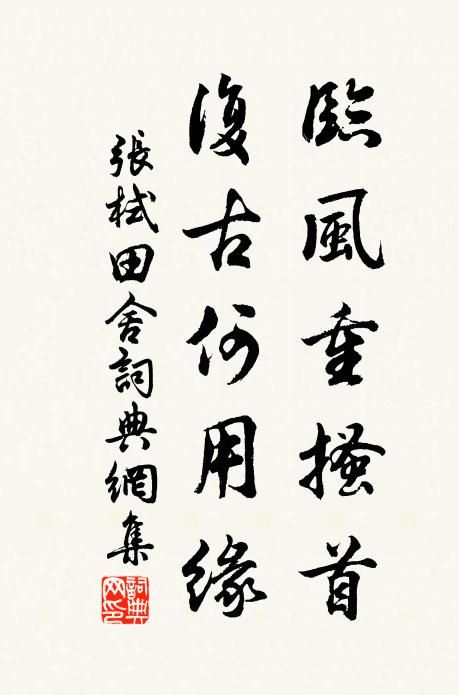 臨風重搔首
復古何用緣
張栻田舍詞典網集
詞典網印